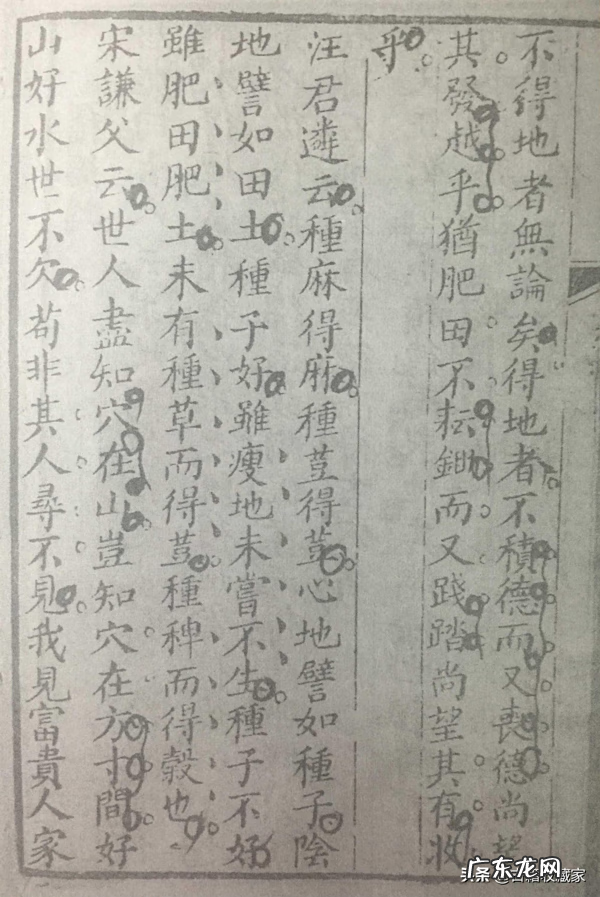 不得地者無論矣得地者不積德而又喪德尚望
其發越乎猶肥田不耘鋤而又踐踏尚望其有收
乎
汪君遴云種麻得麻種荳得荳心地譬如種子陰
地譬如田土種子好雖瘦地未嘗不生種子不好
雖肥田肥土未有種草而得荳種稗而得穀也
宋謙父云世人盡知穴在山豈知穴在方寸間好
山好水世不欠苟非其人尋不見我見富貴人家
头条@古籍收藏家
广东龙网